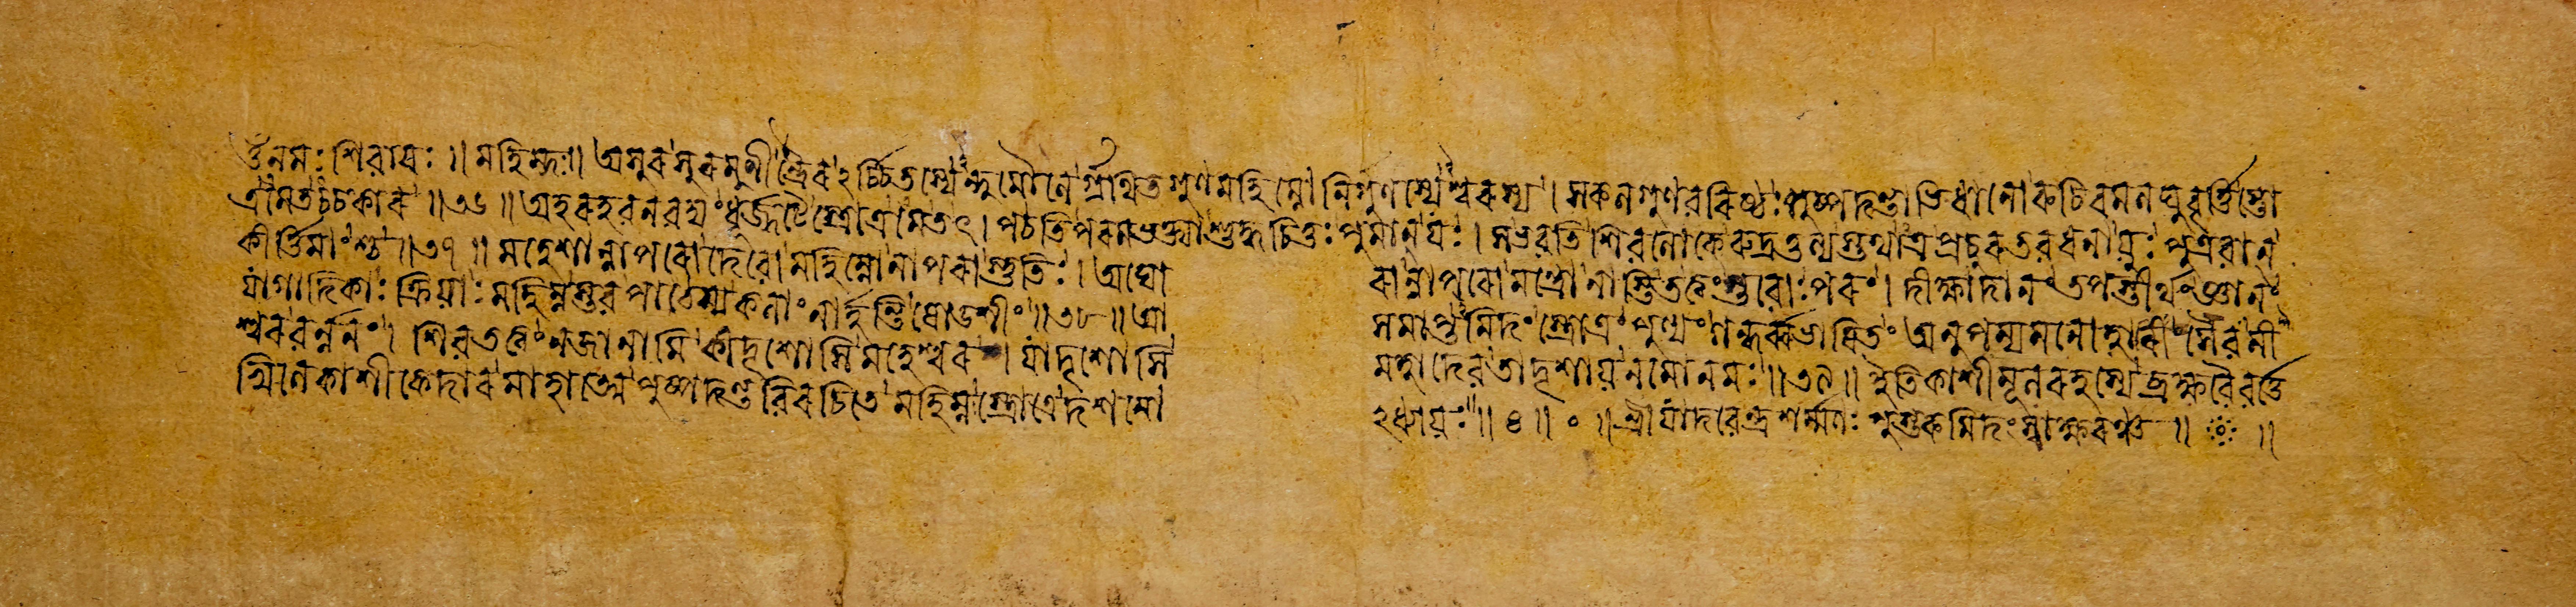 ওঁ নমঃ শিবায়ঃ ॥ মহিম্নঃ॥ অসুরসুরমুণীন্দ্রৈরঽর্চ্চিতস্যেন্দুমৌলের্গ্রথিতগুণমহিম্নোনির্গুণস্যেশ্বরস্য । সকলগুণবরিষ্ঠ্যঃপুষ্পদন্তাভিধানোরুচিরমলঘুবৃর্ত্তিস্তো
ত্রমেতচ্চকার ॥৩৬॥ অহরহরনবদ্যংধূর্জ্জটেস্তোত্রমেতৎ। পঠতিপরমভক্ত্যাশুদ্ধচিত্তঃপুমান্যঃ। সভবতিশিবলোকেরুদ্রতুল্যস্তথাত্রপ্রচুরতরধনায়ুঃপুত্রবান
কীর্ত্তিমাংশ্চ॥৩৭॥ মহেশান্নাপরোদেবোমহিম্নোনাপরাস্তুতিঃ। অঘো
রান্নাপরোমন্ত্রোনাস্তিতত্ত্বংগুরোঃপরং। দীক্ষাদানংতপস্তীর্থংজ্ঞানং
যাগাদিকাঃক্রিয়াঃমহিম্নস্তবপাঠেস্যকলাংনার্হন্তিষোডশীং॥৩৮॥ আ
সমাপ্তমিদংস্তোত্রংপুণ্যংগন্ধর্ব্বভাষিতং অনুপম্যমনোহারীংসৈবমী
শ্বরবর্ন্ননং। শিবতত্ত্বংনজানামিকীদৃশোসিমহেশ্বর । যাদৃশোসি
মহাদেবতাদৃশায়নমোনমঃ॥৩৯॥ ইতিকাশীমূলরহস্যেব্রহ্মবৈবর্ত্তে
খিলেকাশীকেদারমাহাত্ম্যেপুষ্পদন্তবিরচিতেমহিম্নস্তোত্রেদশমো
ঽধ্যায়ঃ॥৪॥ ॰ ॥শ্রীযাদবেন্দ্রশর্ম্মণঃপুস্তকমিদংস্বাক্ষরঞ্চ ॥ ॥